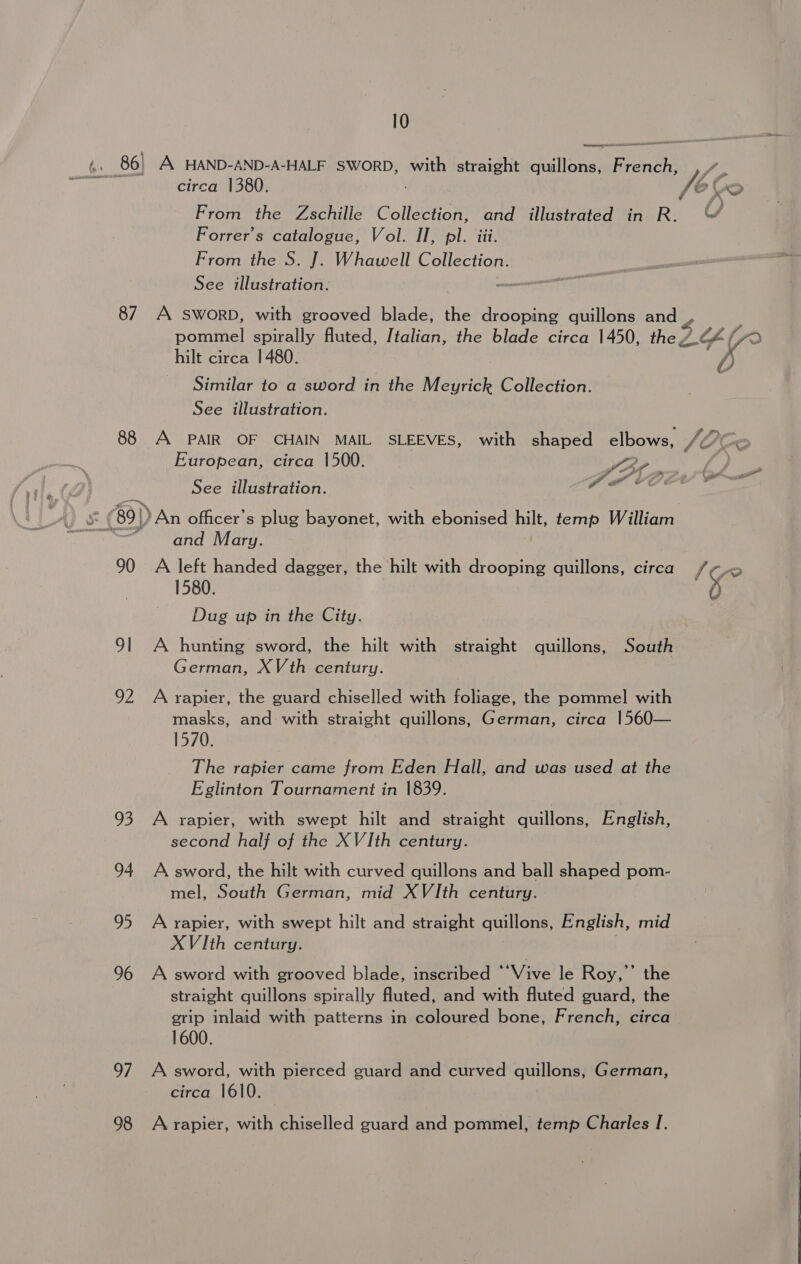 10
86 A HAND-AND-A-HALF SWORD, with straight quillons, French,
circa 1380.
From the Zschille Collection, and illustrated in R.
Forrer's catalogue, Vol. II, pl. iii.
From the S. J. Whawell Collection.
See illustration.
87 A SWORD, with grooved blade, the drooping quillons and
pommel spirally fluted, Italian, the blade circa 1450, the
hilt circa 1480.
Similar to a sword in the Meyrick Collection.
See illustration.
88 A PAIR OF CHAIN MAIL SLEEVES, with shaped elbows,
European, circa 1500.
See illustration.
89 An officer's plug bayonet, with ebonised hilt, temp William
and Mary.
90 A left handed dagger, the hilt with drooping quillons, circa
1580.
Dug up in the City.
91 A hunting sword, the hilt with straight quillons, South
German, XVth century.
92 A rapier, the guard chiselled with foliage, the pommel with
masks, and with straight quillons, German, circa 1560—
1570.
The rapier came from Eden Hall, and was used at the
Eglinton Tournament in 1839.
93 A rapier, with swept hilt and straight quillons, English,
second half of the XVIth century.
94 A sword, the hilt with curved quillons and ball shaped pom-
mel, South German, mid XVIth century.
95 A rapier, with swept hilt and straight quillons, English, mid
XVIth century.
96 A sword with grooved blade, inscribed “Vive le Roy,” the
straight quillons spirally fluted, and with fluted guard, the
grip inlaid with patterns in coloured bone, French, circa
1600.
97 A sword, with pierced guard and curved quillons, German,
circa 1610.
98 A rapier, with chiselled guard and pommel, temp Charles I.